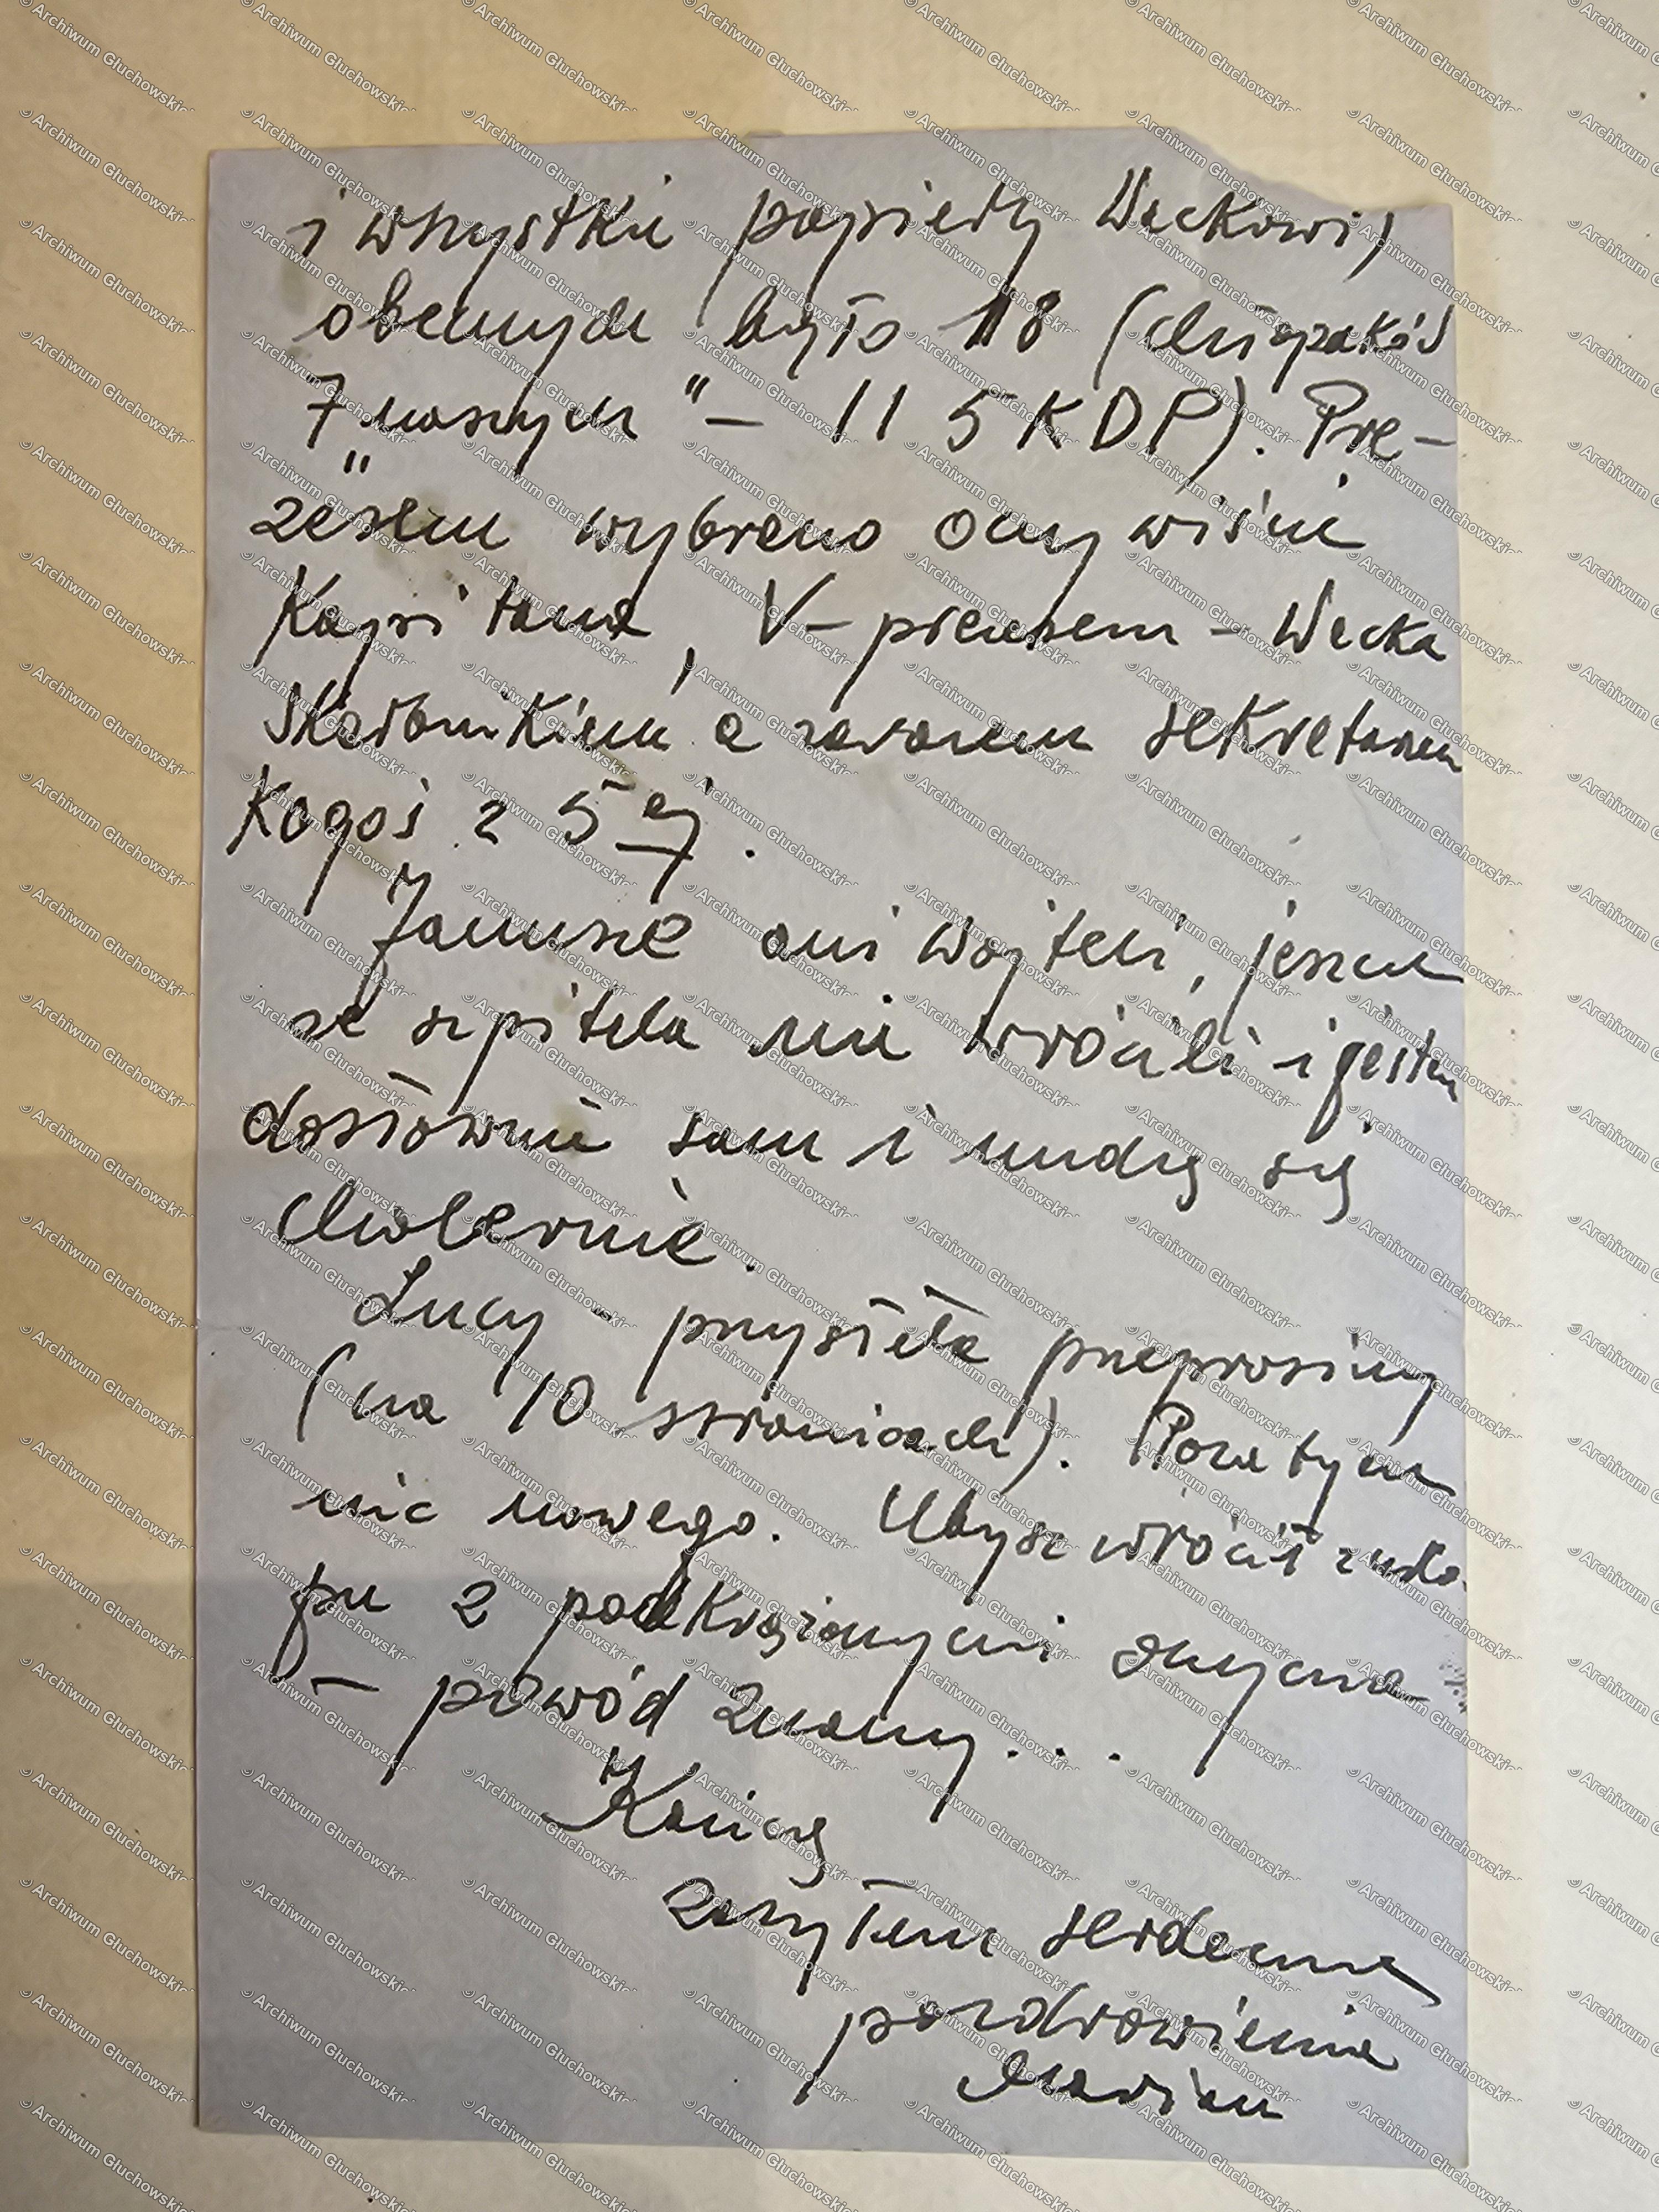 i wszystkie papiery Wackowi)
obecnych było 18 (chłopaków
7 „naszych" – 11 5KDP). Pre-
zesem wybrano oczywiście
Kapitana, V-prezesem – Wacka
Skarbnikiem a zarazem sekretarzem
Kogoś z 5ej.
Janusz ani Wojtek, jeszcze
ze szpitala nie wrócili i jestem
dosłownie sam i nudzę się
cholernie.
Lucy – przysłała przeprosiny
(na 10 stronicach). Poza tym
nic nowego. wrócił z urlo-
pu z podkrążonymi oczyma
– powód znany...
Kończę
Zasyłam serdeczne
pozdrowienia
Marian